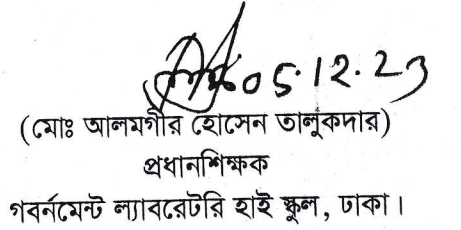 05.12.23
(মোঃ আলমগীর হোসেন তালুকদার)
প্রধানশিক্ষক
গবর্নমেন্ট ল্যাবরেটরি হাই স্কুল, ঢাকা।